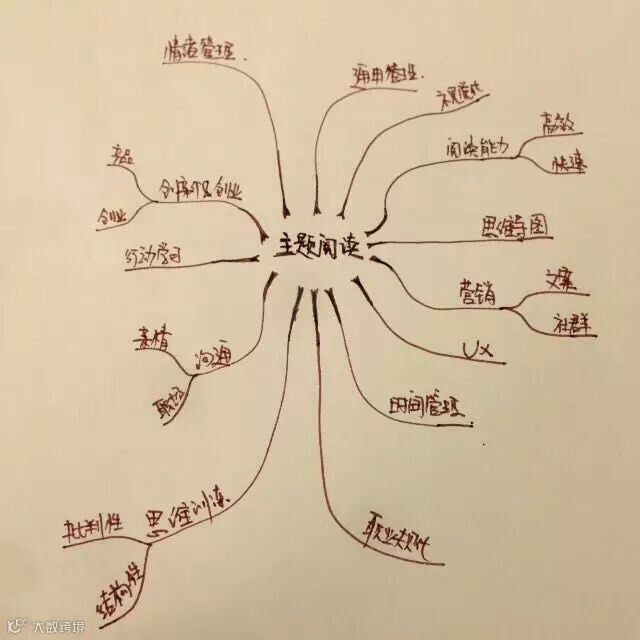 主题阅读
情绪管理
通用管理
视觉化
阅读能力
高效
快速
思维导图
营销
文案
社群
UX
时间管理
职业规化
思维训练
批判性
结构性
沟通
亲情
职场
行动学习
创业
产品
创业
大数跨境